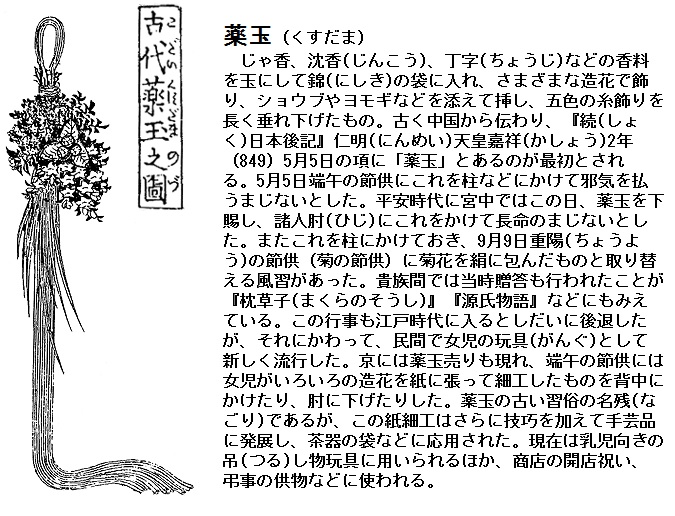 古代薬玉之圖
こだいくすだまのづ
薬玉 (くすだま)
じゃ香、沈香(じんこう)、丁字(ちょうじ)などの香料
を玉にして錦(にしき)の袋に入れ、さまざまな造花で飾
り、ショウブやヨモギなどを添えて挿し、五色の糸飾りを
長く垂れ下げたもの。古く中国から伝わり、『続(しょ
く)日本後記』仁明(にんめい)天皇嘉祥(かしょう)2年
(849) 5月5日の項に「薬玉」とあるのが最初とされ
る。5月5日端午の節供にこれを柱などにかけて邪気を払
うまじないとした。平安時代に宮中ではこの日、薬玉を下
賜し、諸人肘(ひじ)にこれをかけて長命のまじないとし
た。またこれを柱にかけておき、9月9日重陽(ちょうよ
う)の節供 (菊の節供) に菊花を絹に包んだものと取り替
える風習があった。貴族間では当時贈答も行われたことが
『枕草子(まくらのそうし)』『源氏物語』などにもみえ
ている。この行事も江戸時代に入るとしだいに後退した
が、それにかわって、民間で女児の玩具(がんぐ)として
新しく流行した。京には薬玉売りも現れ、端午の節供には
女児がいろいろの造花を紙に張って細工したものを背中に
かけたり、肘に下げたりした。薬玉の古い習俗の名残(な
ごり)であるが、この紙細工はさらに技巧を加えて手芸品
に発展し、茶器の袋などに応用された。現在は乳児向きの
吊(つる)し物玩具に用いられるほか、商店の開店祝い、
弔事の供物などに使われる。